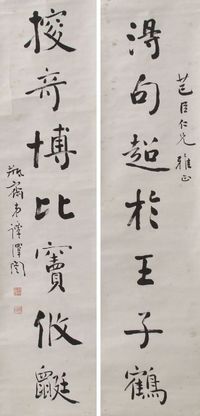 芑臣仁兄雅正
得句超於王子鶴
搜奇博比竇攸鼮
瓶齋弟譚澤闓